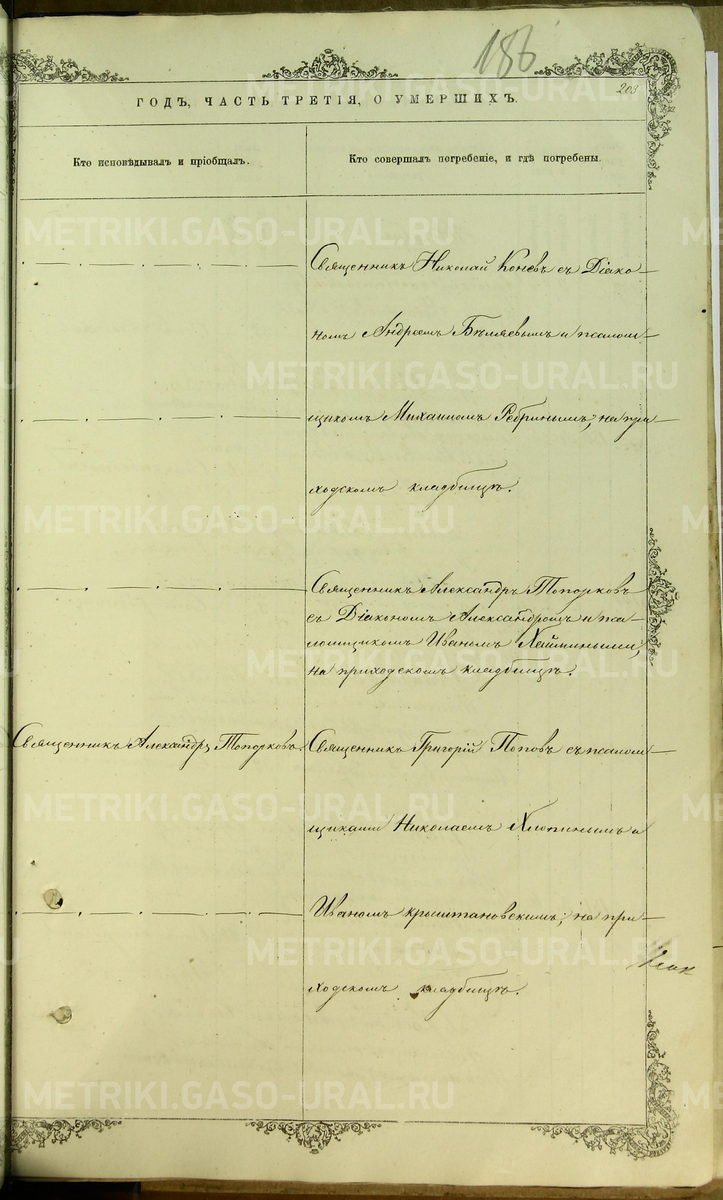 186
203
ГОДЪ, ЧАСТЬ ТРЕТІЯ, О УМЕРШИХЪ.
Кто исповѣдывалъ и пріобщалъ.
Кто совершалъ погребеніе, и гдѣ погребены.
METRIKI.GASO-URAL.RU
Священникъ Николай Коневъ съ Діако-
номъ Андреемъ Бѣляевымъ и псалом-
METRIKI.GASO-URAL.RU
щикомъ Михаиломъ Ребринымъ; на при-
ходскомъ кладбищѣ.
METRIKI.GASO-URAL.RU
Священникъ Александръ Топорковъ
съ Діакономъ Александромъ и пса-
ломщикомъ Иваномъ
METRIKI.GASO-URAL.RU
на приходскомъ кладбищѣ.
Священникъ Александръ Топорковъ.
Священникъ Григорій Поповъ съ псалом-
METRIKI.GASO-URAL.RU
щиками Николаемъ Хлопинымъ и
Иваномъ Крыштановскимъ; на при-
METRIKI.GASO-URAL.RU
ходскомъ кладбищѣ.
METRIKI.GASO-URAL.RU